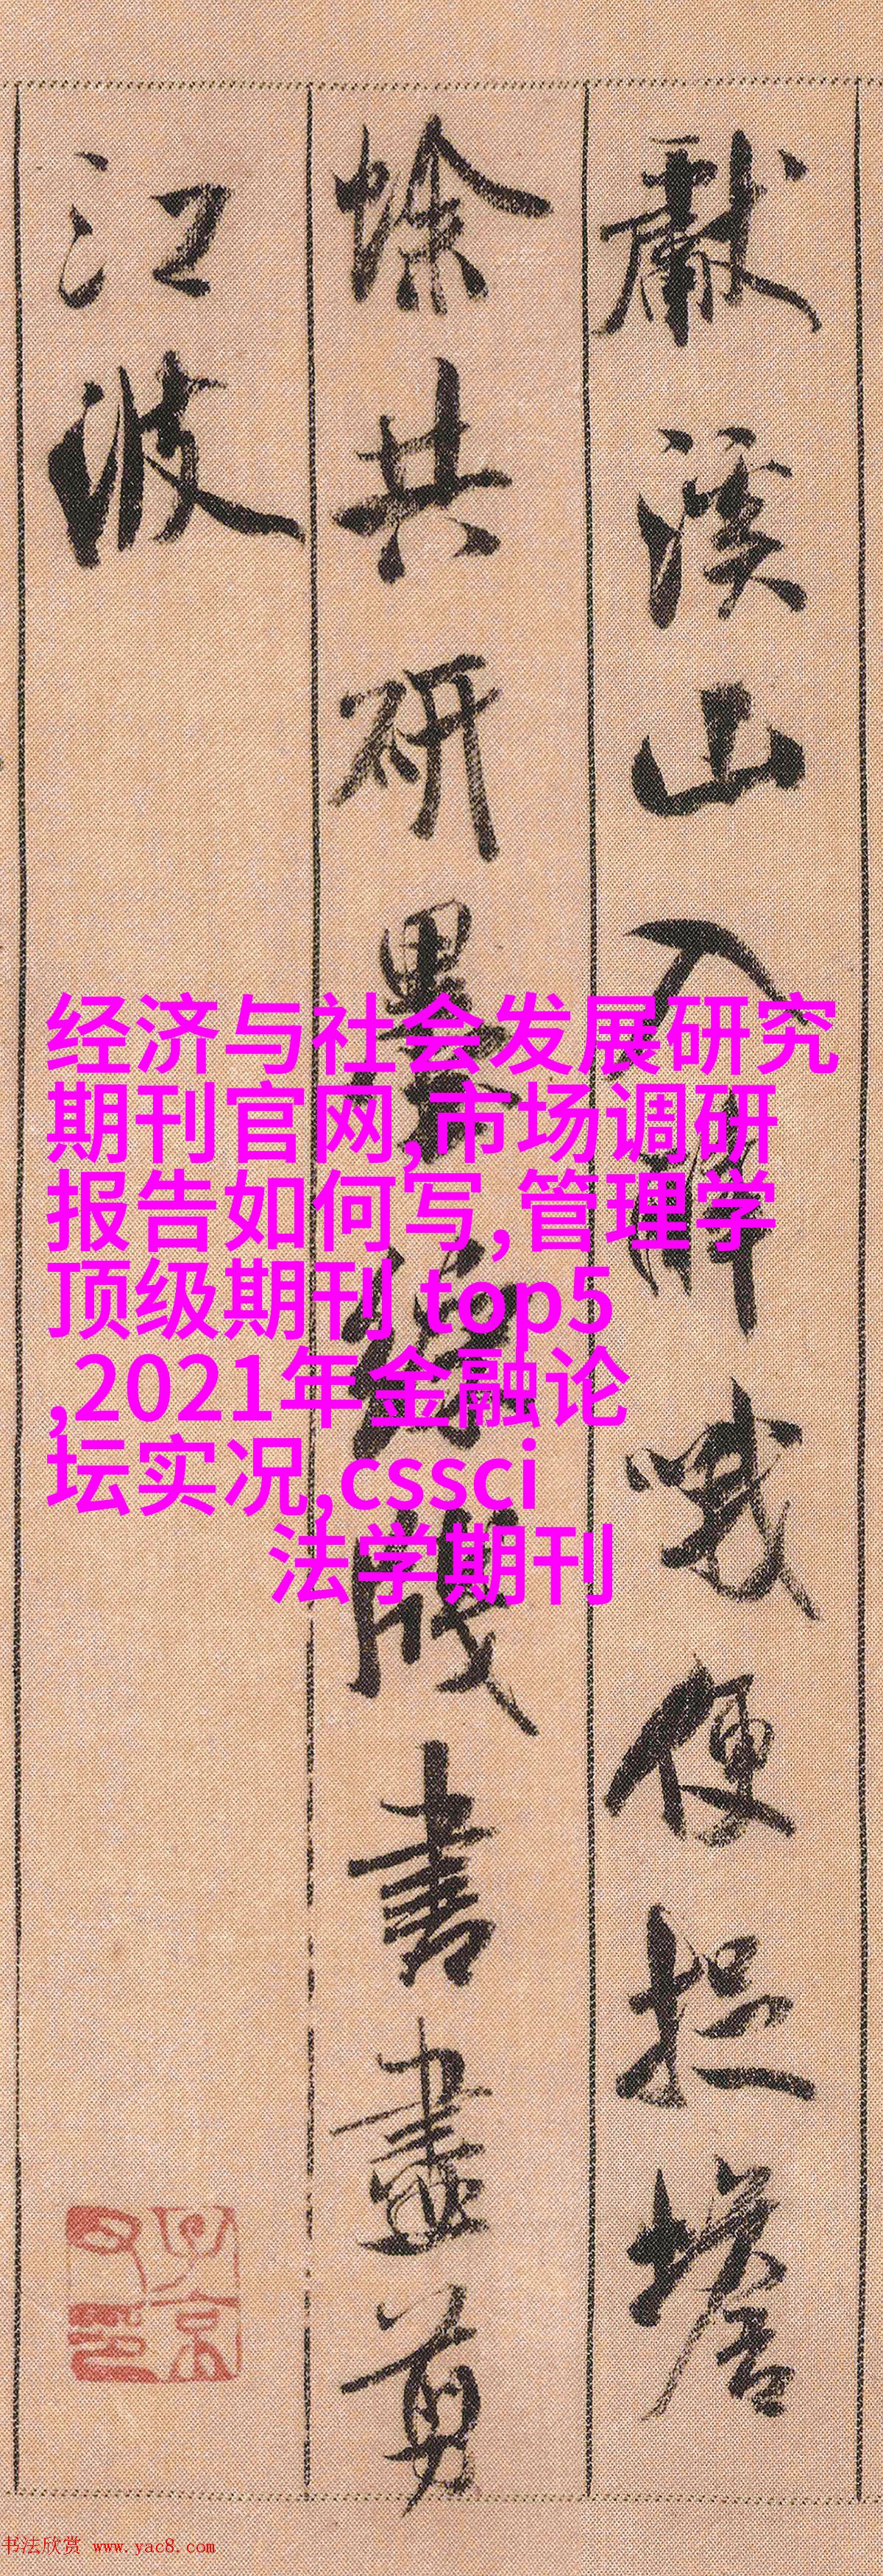 献溪山入醉哦便捉蟾
蜍共研墨䌽笺書盡剪
江波
经济与社会发展研究
期刊官网,市场调研
报告如何写,管理学
顶级期刊 top5
,2021年金融论
坛实况,cssci
法学期刊
书法欣赏 www.yac8.com